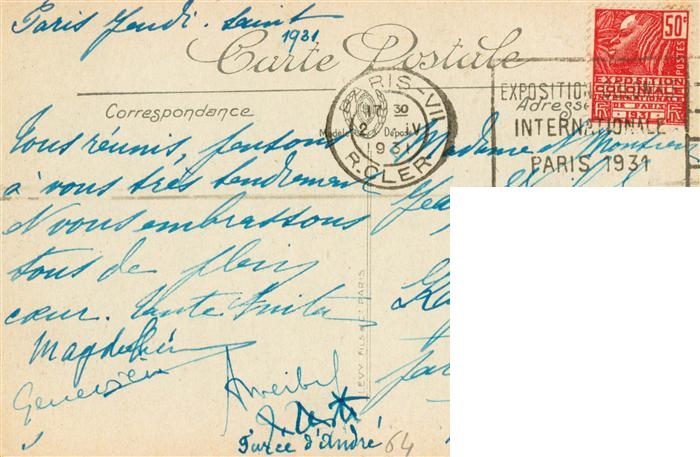 Paris Jeudi-Saint
1931
Carte Postale
Correspondance
Modèle Déposé
Adresse
PARIS-VII
17 30
2 IV
1931
R. CLER
EXPOSITION COLONIALE
INTERNATIONALE
PARIS 1931
50c
POSTES
EXPOSITION
COLONIALE
INTERNATIONALE
DE PARIS
1931
Tous réunis, pensons
à vous très tendrement
et vous embrassons
tous de plein
cœur. Tante Anita
Magdeleine
Geneviève
Purée d'André
64
LEVY FILS & Cie PARIS
Madame et Monsieur
Jea